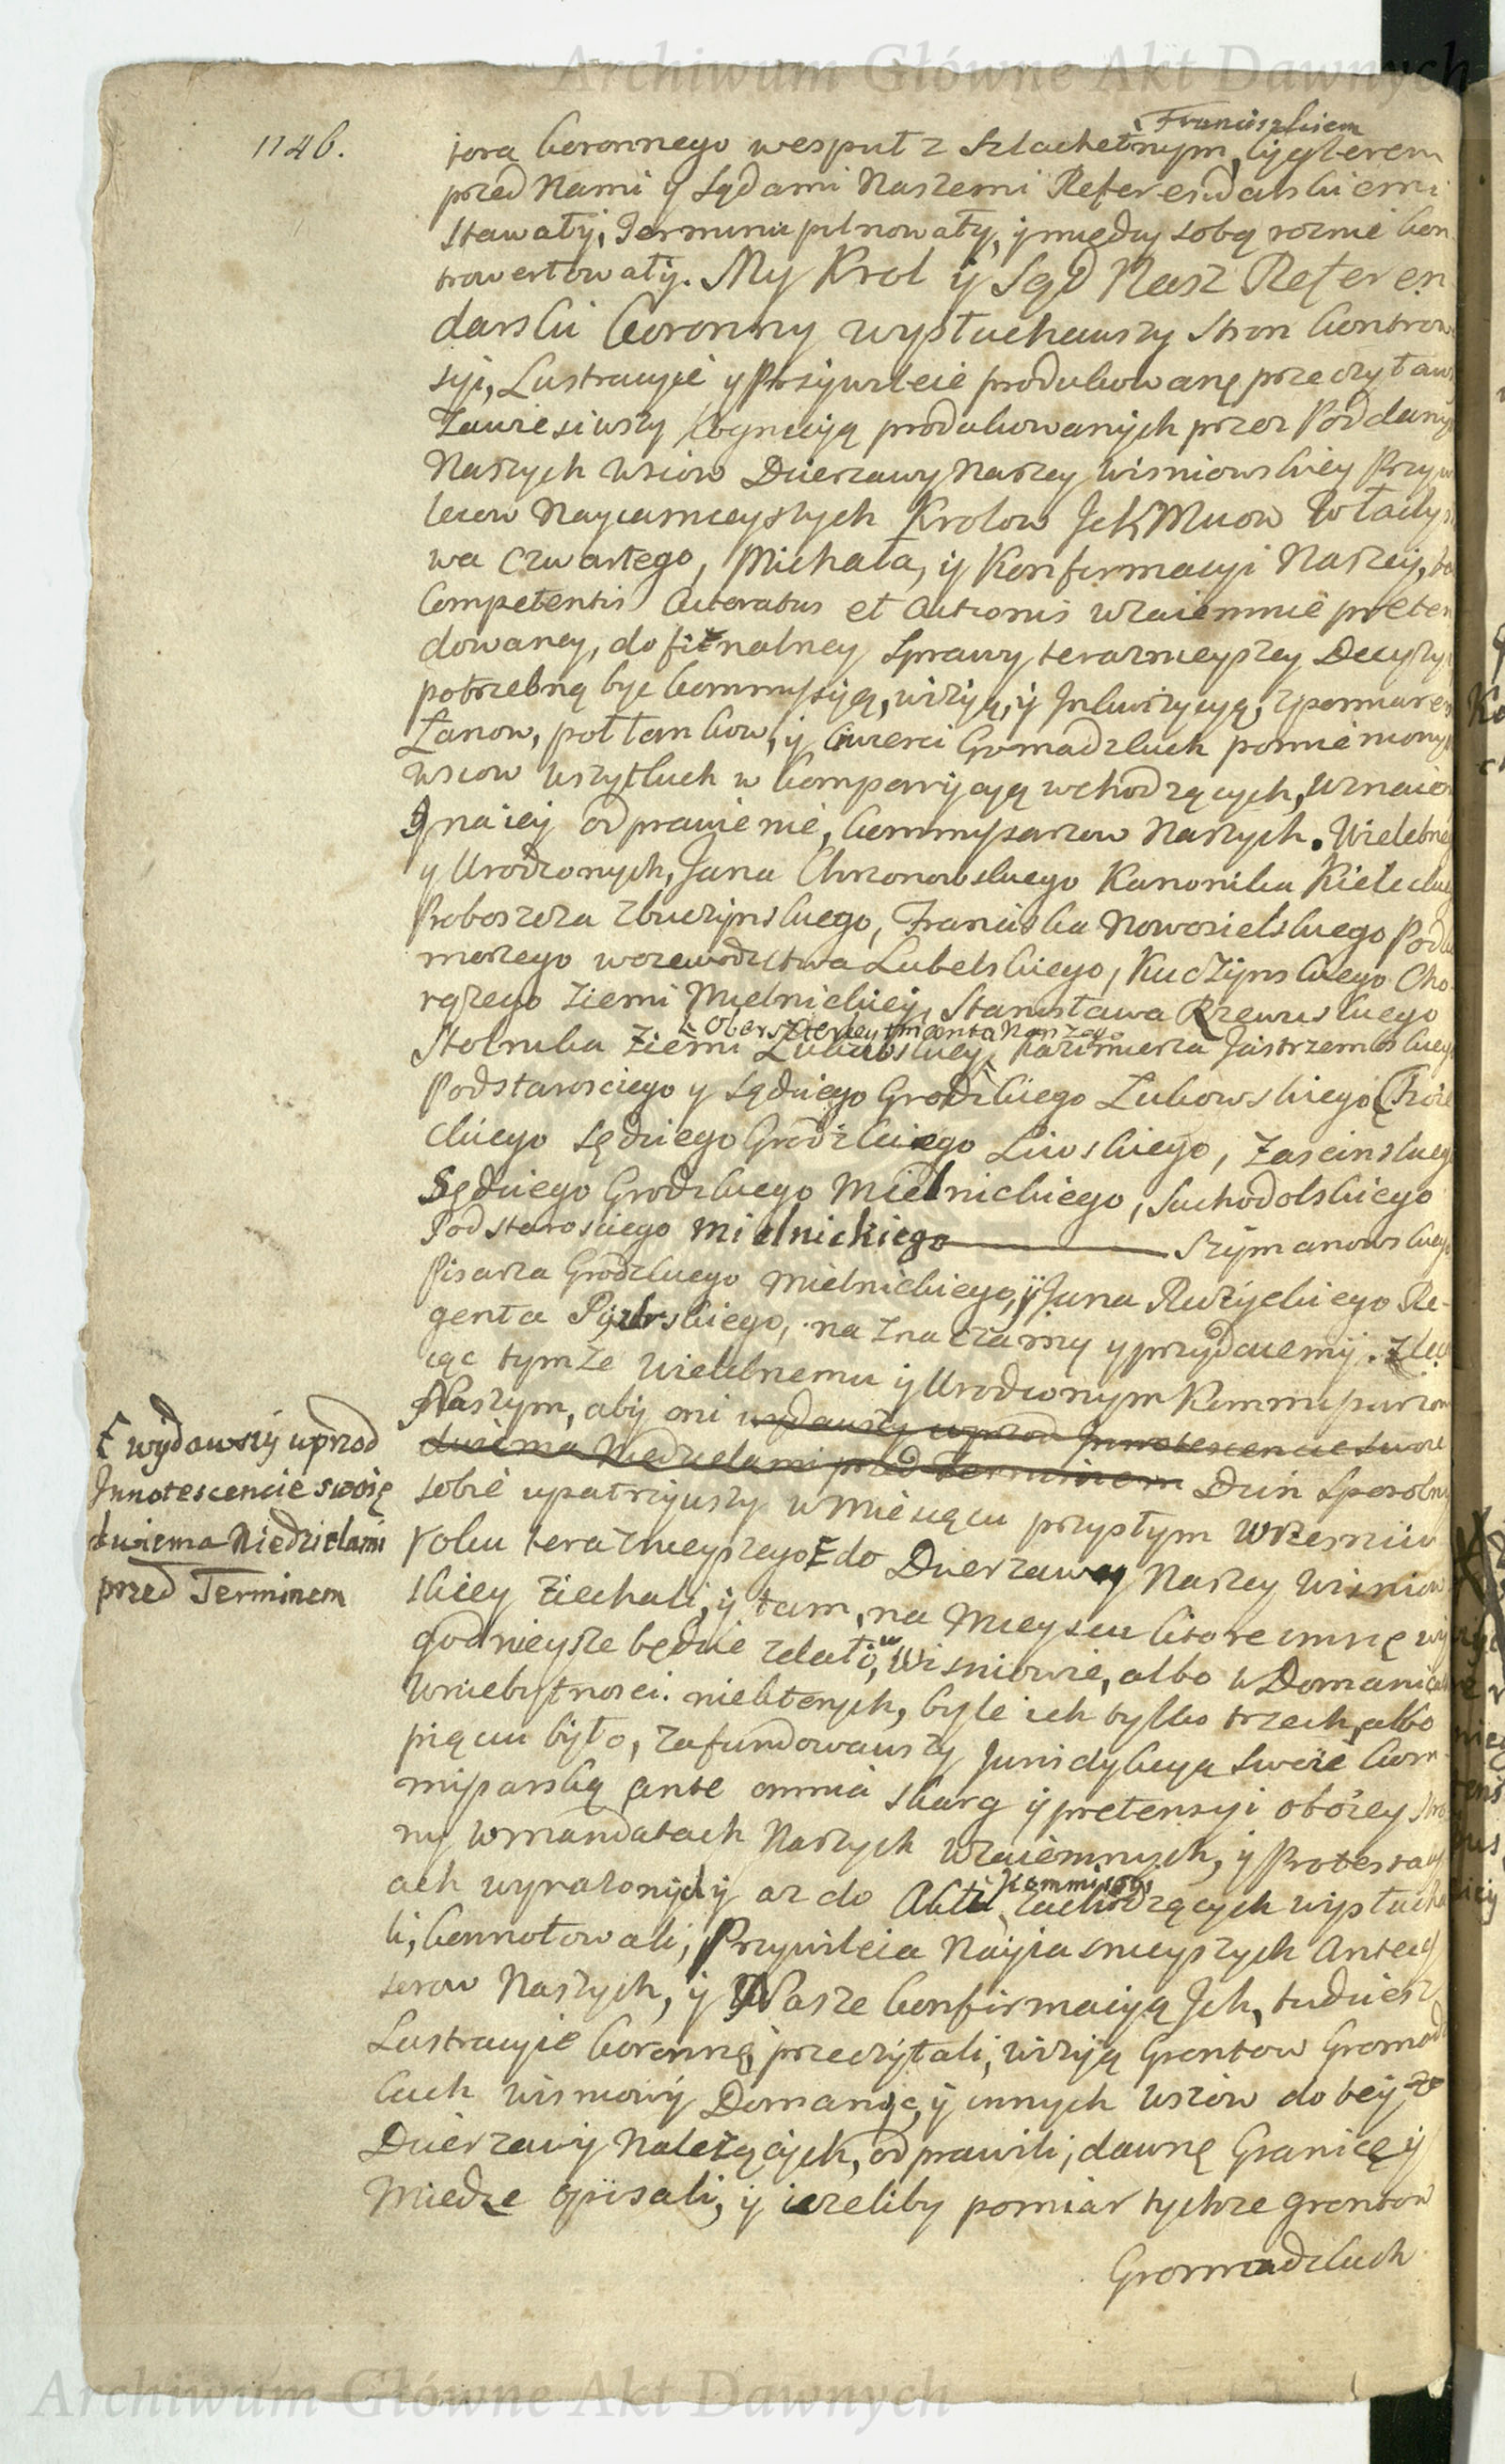 Archiwum Główne Akt Dawnych
1126.
Franciszkiem
tora Koronnego wespuł z Szlachetnym, Cyglerem
przed Nami y Sądami Naszemi Referendarskiemi
stawały, Terminu pilnowały, y między sobą roznie kon
trowertowały. My Krol y Sąd Nasz Referen
darski Koronny wysłuchawszy Stron kontrow
syi, Lustracyie y Przywileie produkowane przeczytaw
Zawiesiwszy kognicyją produkowanych przez Poddany
Naszych wsiow Dzierzawy Naszey Wisniowskiey Przyw
leiow Nayiasnieyszych Krolow Ich Mciow Władys
wa Czwartego, Michała, y Konfirmacyi Naszey,
Competentis Actoratus et Actionis wzaiemnie preten
dowaney, do finalney Sprawy teraznieyszey Decyzyi
potrzebną byc kommyssyią, wizyią, y Inkwizycyią, z pomiarem
Łanow, połłankow, y Cwierci Gromadzkich pomienionych
wsiow wszytkich w komportycyią wchodzących, uznaio
y na iey odprawienie, kommyssarzow Naszych. Wielebne
y Urodzonych, Jana Chrzonowskiego Kanonika Kieleckie
Proboszcza Zbuczynskiego, Franciszka Nowosielskiego Podko
morzego woiewodztwa Lubelskiego, Kuczynskiego Cho-
rążego Ziemi Mielnickiey, Stanisława Rzewuskiego
Obersztleytnanta Naszego
Stolnika Ziemi Łukowskiey, Kazimierza Jastrzembskiego
Podstarosciego y Sędziego Grodzkiego Łukowskiego,
ckiego Sędziego Grodzkiego Liwskiego, Zascinskiego
Sędziego Grodzkiego Mielnickiego, Suchodolskiego
Podstarosciego Mielnickiego Szymanowskiego
Pisarza Grodzkiego Mielnickiego, y Jana Rużyckiego Re-
genta skiego, naznaczamy y przydaiemy. Zleca
iąc tymze Wielebnemu y Urodzonym Kommissarzom
Naszym, aby oni wydawszy uprzod Innotescencie swoie
dwiema Niedzielami przed Terminem Dzin sposobny
sobie upatrzywszy w miesiącu przyszłym Wrzesniu
roku teraznieyszego do Dzierzawy Naszey Wisniow
skiey ziechali, y tam, na mieyscu ktore im się wy
godnieysze będzie zdało, w Wisniowie, albo w Domanicach
w niebytnosci niektorych, byle ich tylko trzech, albo
pięciu było, zafundowawszy Jurisdykcyą swoie kom-
missarską ante omnia skarg y pretensyi obóiey stro
ny w mandatach Naszych wzaiemnych, y Protestacy
Kommissyi
ach wyrazonych y az do Aktu zachodzących wysłucha
li, konnotowali, Przywileia Nayiasnieyszych Antec
sorow Naszych, y Nasze konfirmacyią Ich, tudziesz
Lustracyie koronną przeczytali, wizyią Grontow Gromadz
kich Wisniowy Domanic, y innych wsiow do tey ze
Dzierzawy Należących, odprawili, dawną Granicę y
Miedze opisali, y iezeliby pomiar tychze grontow
Gromadzkich
wydawszy uprzod
Innotescencie swoię
dwiema Niedzielami
przed Terminem
Archiwum Główne Akt Dawnych